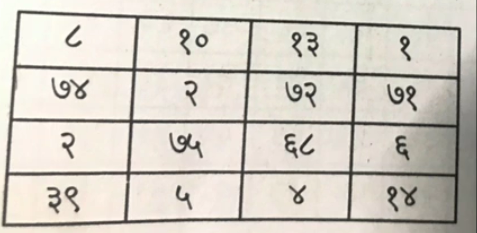 ८ १० १३ १
७४ २ ७२ ७१
२ ७५ ६८ ६
३९ ५ ४ १४